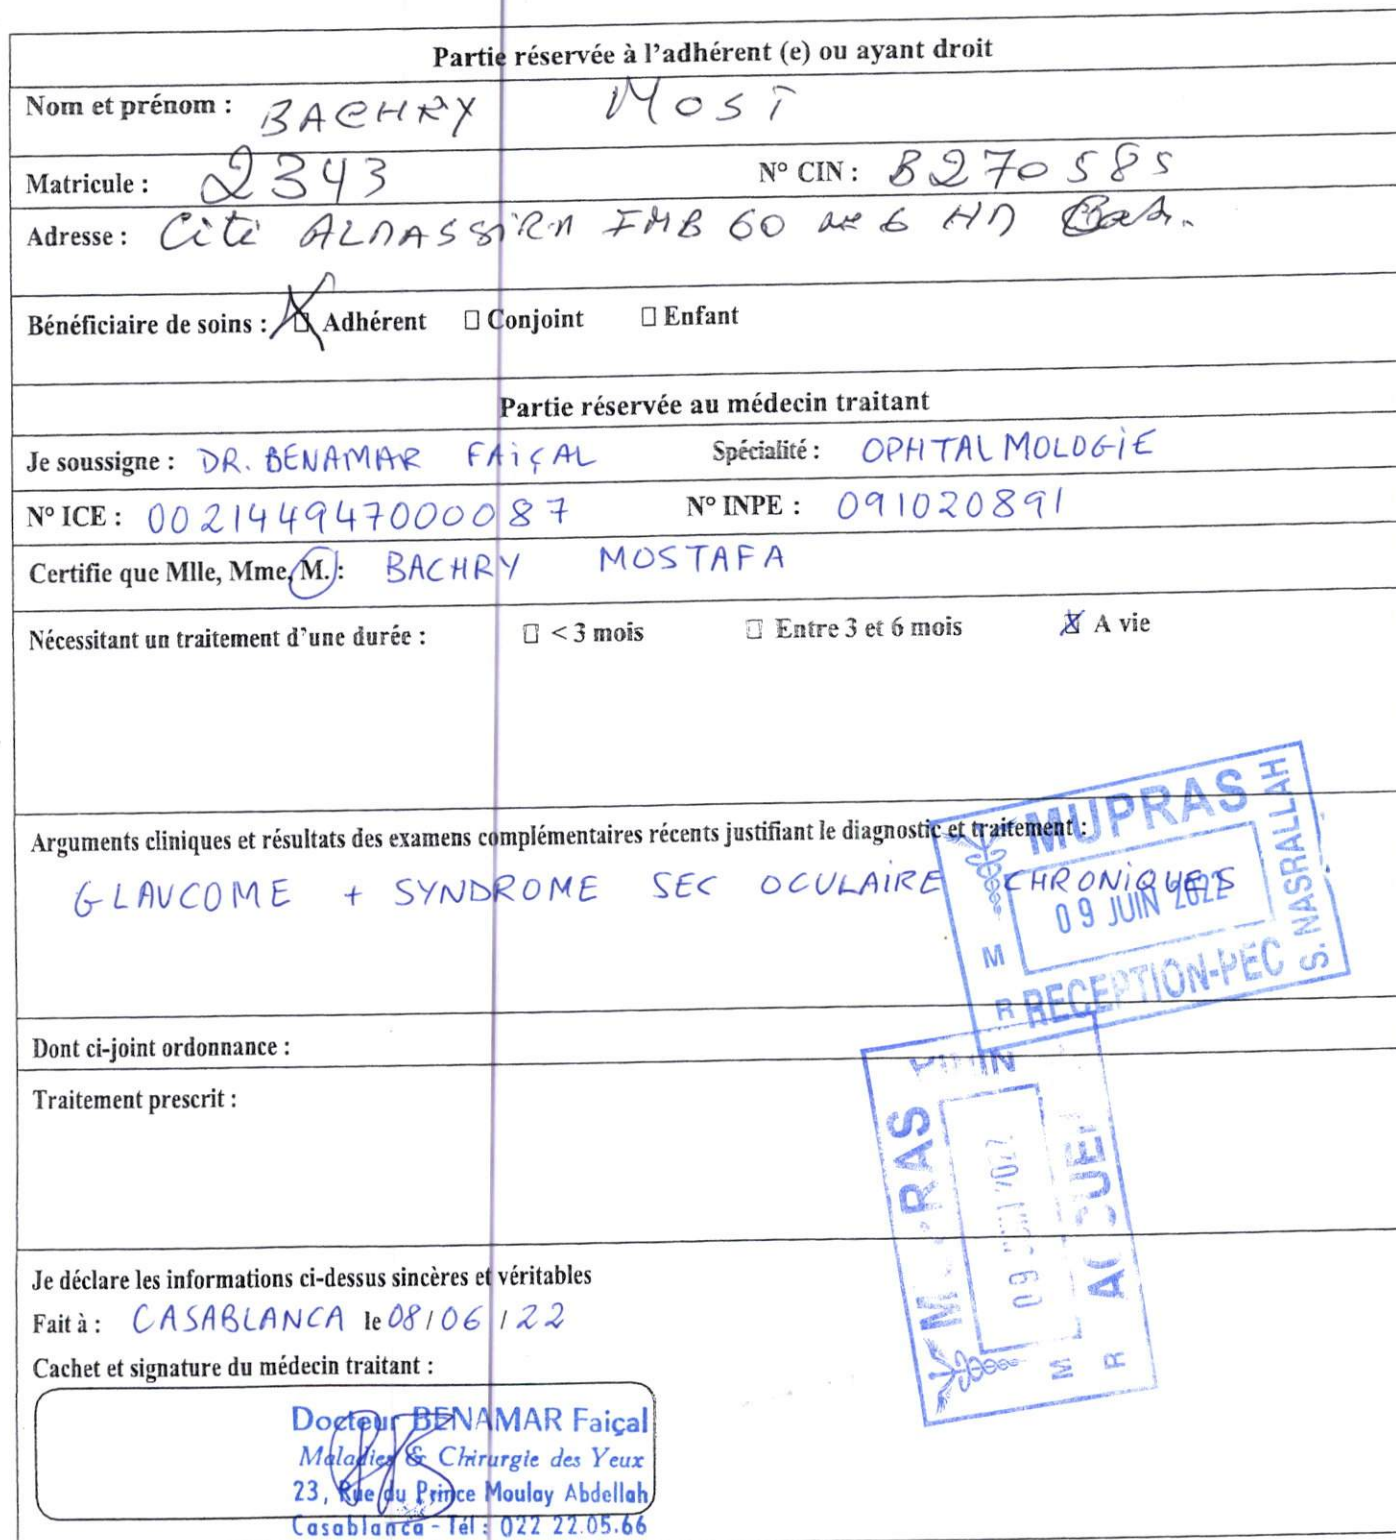 Partie réservée à l'adhérent (e) ou ayant droit
Nom et prénom : BACHRY MOST
Matricule : 2343 N° CIN : B270585
Adresse : Cité IMB 60 6
Bénéficiaire de soins : ☒ Adhérent ☐ Conjoint ☐ Enfant
Partie réservée au médecin traitant
Je soussigne : DR. BENAMAR FAIÇAL Spécialité : OPHTALMOLOGIE
N° ICE : 002144947000087 N° INPE : 091020891
Certifie que Mlle, Mme, M. : BACHRY MOSTAFA
Nécessitant un traitement d'une durée : ☐ < 3 mois ☐ Entre 3 et 6 mois ☒ A vie
Arguments cliniques et résultats des examens complémentaires récents justifiant le diagnostic et traitement :
GLAUCOME + SYNDROME SEC OCULAIRE CHRONIQUES
MUPRAS
09 JUIN 2022
S. NASRALLAH
M R
RECEPTION-PEC
Dont ci-joint ordonnance :
Traitement prescrit :
M R
Je déclare les informations ci-dessus sincères et véritables
Fait à : CASABLANCA le 08/06/22
Cachet et signature du médecin traitant :
Docteur BENAMAR Faiçal
Maladies & Chirurgie des Yeux
23, Rue du Prince Moulay Abdellah
Casablanca - Tél : 022 22.05.66